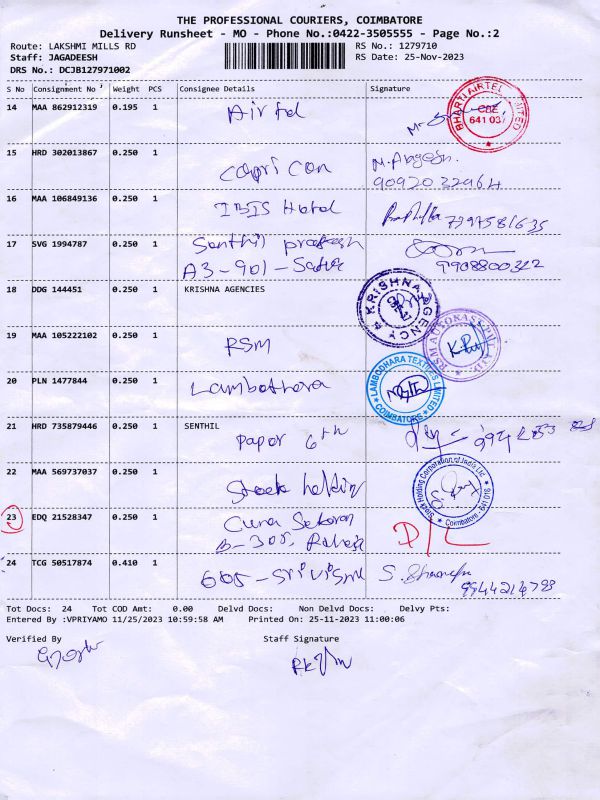 THE PROFESSIONAL COURIERS, COIMBATORE
Delivery Runsheet - MO - Phone No.:0422-3505555 - Page No.:2
Route: LAKSHMI MILLS RD RS No.: 1279710
Staff: JAGADEESH RS Date: 25-Nov-2023
DRS No.: DCJB127971002
S No Consignment No Weight PCS Consignee Details Signature
14 MAA 862912319 0.195 1 Airtel
BHARTI AIRTEL LIMITED CBE 641 037
15 HRD 302013867 0.250 1 Capri Con
9092032964
16 MAA 106849136 0.250 1 IBIS Hotel
7397581635
17 SVG 1994787 0.250 1 Senthil prakash
A3-901-
9908800322
18 DDG 144451 0.250 1 KRISHNA AGENCIES
KRISHNA AGENCY
19 MAA 105222102 0.250 1 RSM
20 PLN 1477844 0.250 1
LAMBODHARA TEXTILES LIMITED COIMBATORE
21 HRD 735879446 0.250 1 SENTHIL
Paper 6th
22 MAA 569737037 0.250 1
Holding Corporation of India Ltd Coimbatore
23 EDQ 21528347 0.250 1
B-305, Raheja
D/L
24 TCG 50517874 0.410 1
9944214798
Tot Docs: 24 Tot COD Amt: 0.00 Delvd Docs: Non Delvd Docs: Delvy Pts:
Entered By :VPRIYAMO 11/25/2023 10:59:58 AM Printed On: 25-11-2023 11:00:06
Verified By Staff Signature